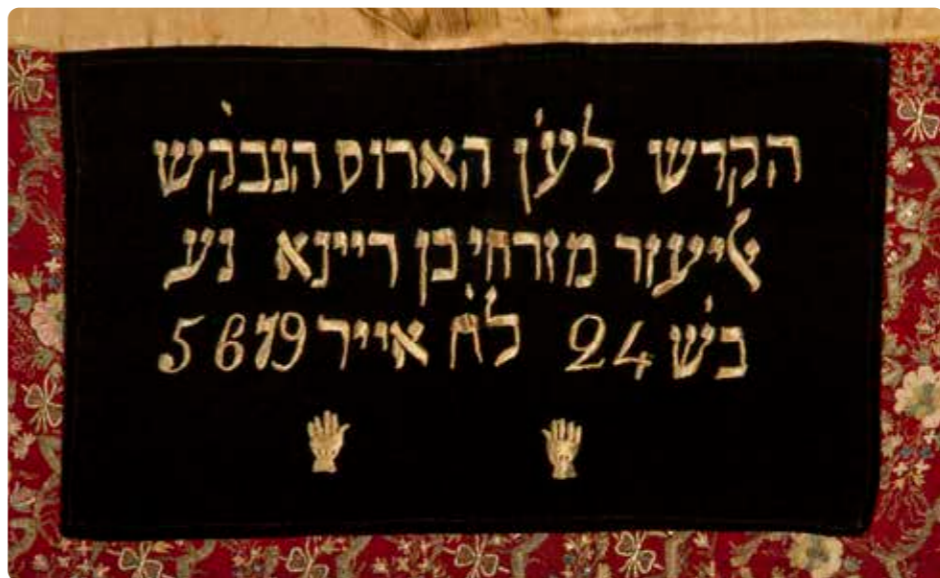 הקדש לע׳ן הארוס הנבק׳ש
אליעזר מזרחי בן ריינא נע
ב׳ש 24 לח׳ אייר 5679